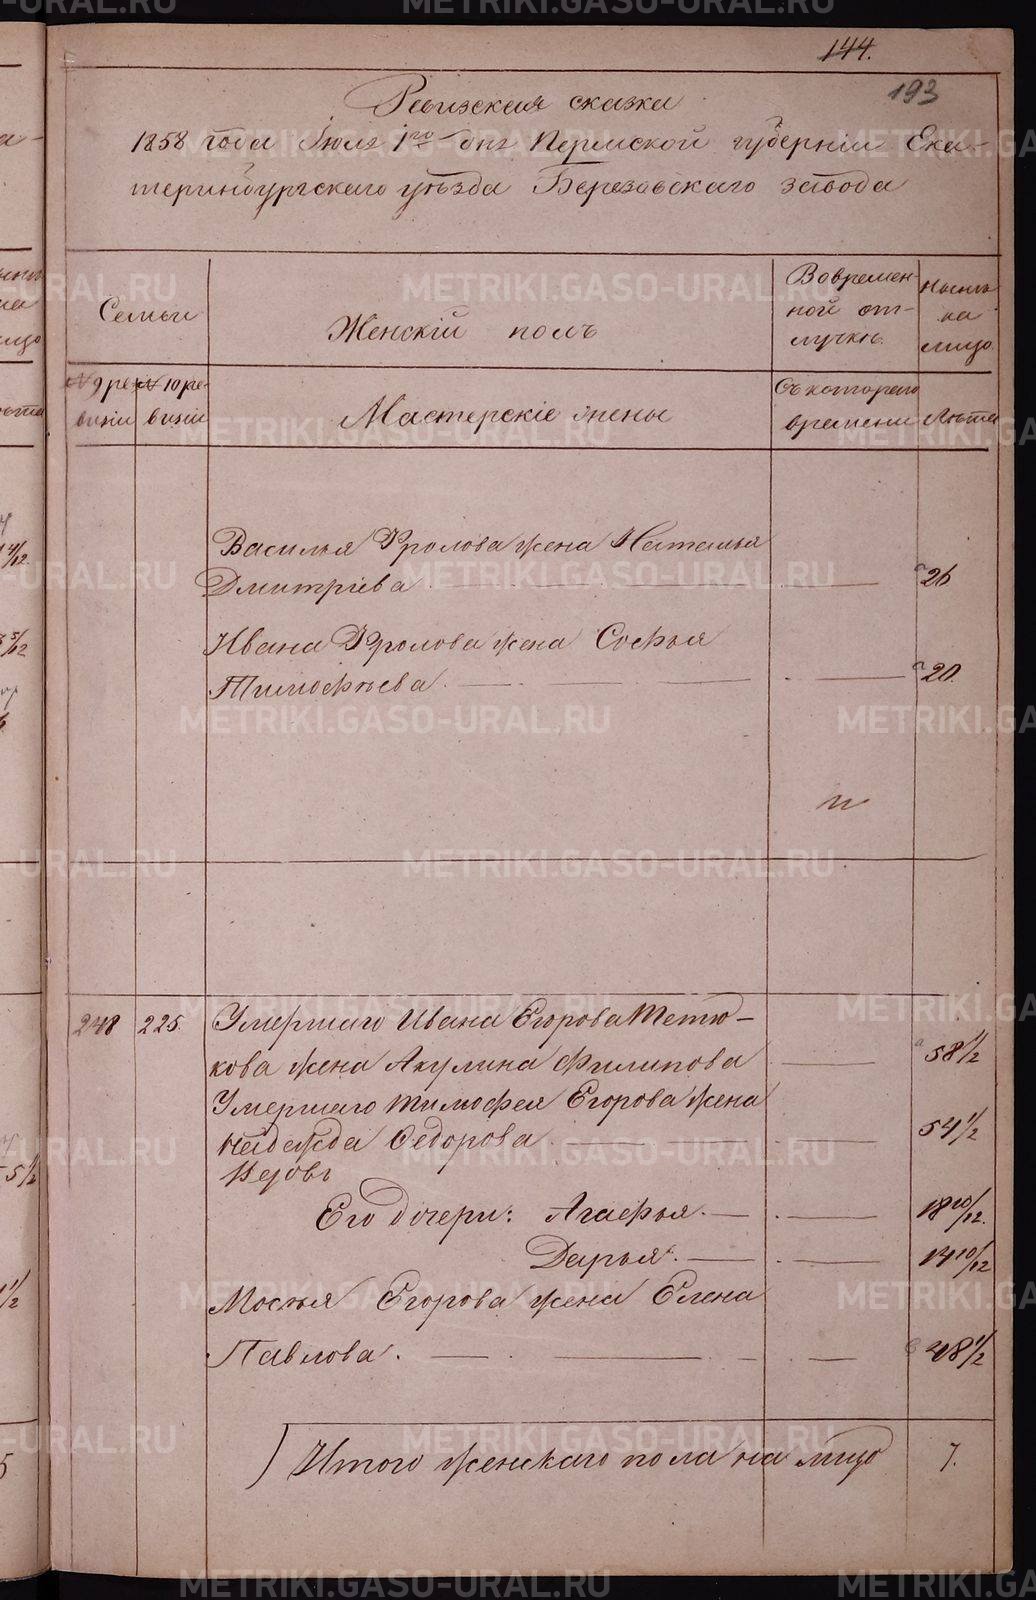 144.
193
Ревизская сказка
1858 года Іюля 1го дня Пермской губерніи Ека-
теринбургскаго уѣзда Березовскаго завода
Семьи
Женскій полъ
Вовремен-
ной от-
лучкѣ.
Нынѣ
на
лицо.
№ 9 ре-
визіи
№ 10 ре-
визіи
Мастерскіе жены
Съ котораго
времени
Лѣта
Василья Фролова жена Наталья
Дмитріева 26
Ивана Фролова жена Софья
Тимофѣева. 20.
248 225. Умершаго Ивана Егорова Тетю-
кова жена Акулина Филипова 58 1/2
Умершаго Тимофея Егорова жена
Надежда Федорова 54 1/2
Его дочери: Агафья. 18 10/12.
Дарья. 14 10/12
Мосѣя Егорова жена Елена
Павлова. 48 1/2
Итого женскаго пола на лицо 7.
METRIKI.GASO-URAL.RU